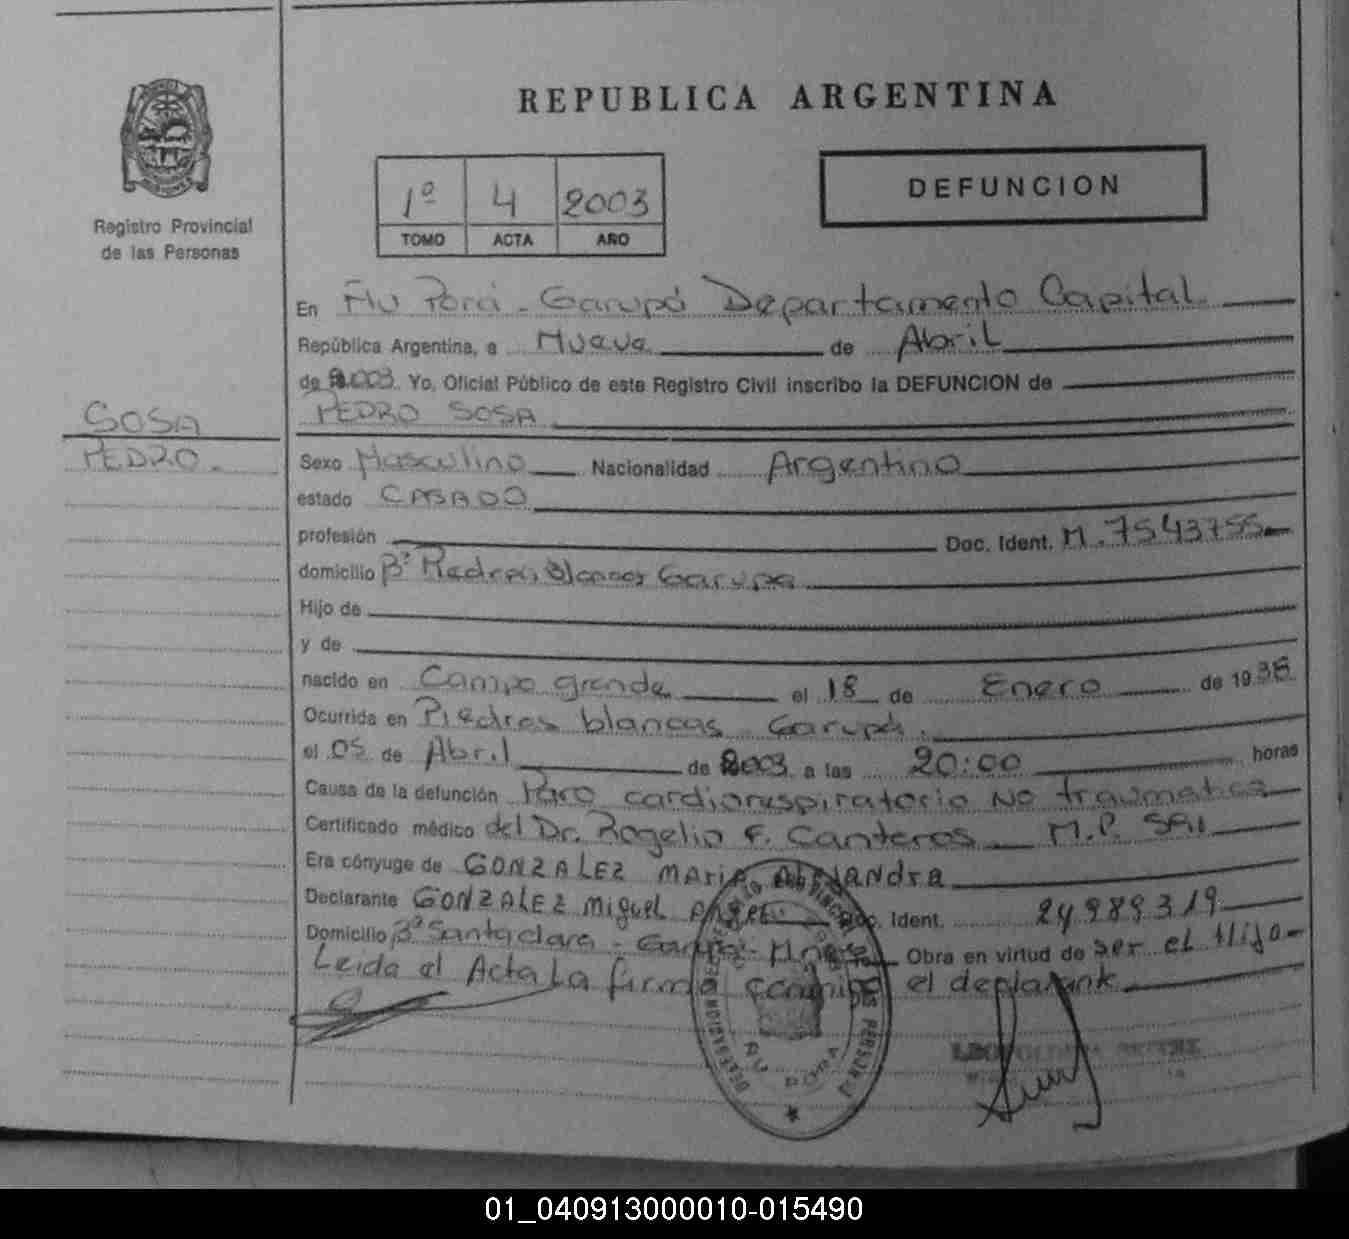 REPUBLICA ARGENTINA
DEFUNCION
1º 4 2003
TOMO ACTA AÑO
Registro Provincial
de las Personas
En Ñu Porá - Garupá Departamento Capital
República Argentina, a Nueve de Abril
de 2.003. Yo, Oficial Público de este Registro Civil inscribo la DEFUNCION de
PEDRO SOSA
SOSA
PEDRO.
Sexo Masculino Nacionalidad Argentino
estado CASADO
profesión Doc. Ident. M. 7543755
domicilio Bº Piedras Blancas Garupa
Hijo de
y de
nacido en Campo grande el 18 de Enero de 1936
Ocurrida en Piedras blancas Garupá.
el 05 de Abril de 2003. a las 20:00 horas
Causa de la defunción Paro cardiorespiratorio No traumatico
Certificado médico del Dr. Rogelio F. Canteros M.P.
Era cónyuge de GONZALEZ MARIA ALEJANDRA
Declarante GONZALEZ Miguel ANGEL Doc. Ident. 24989319
Domicilio Bº Santa clara - Garupá - Mnes Obra en virtud de ser el Hijo
Leida el Acta La firma conmigo el declarante
ÑU PORA
01_040913000010-015490